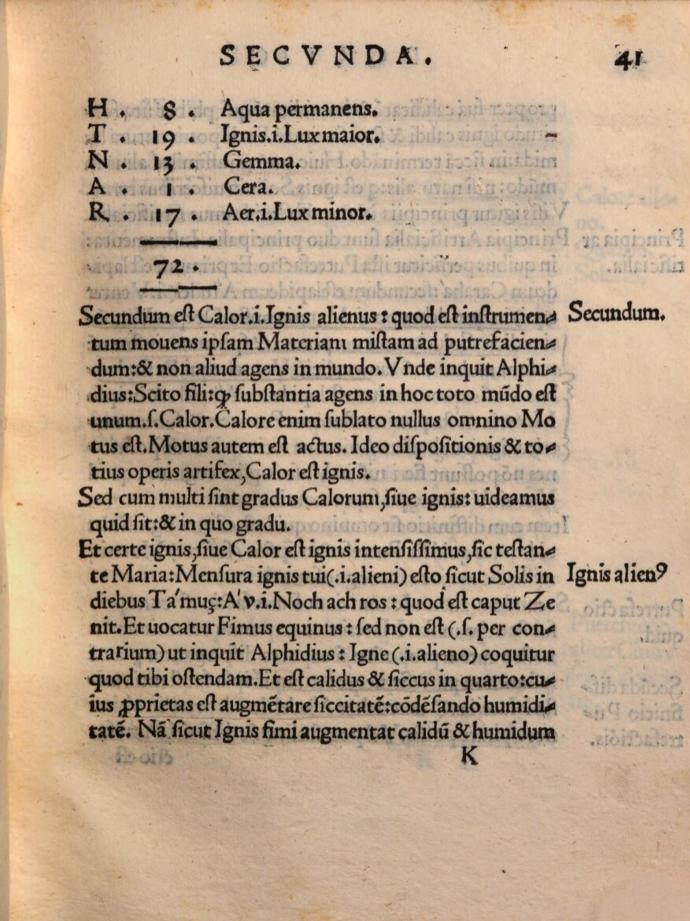 SECVNDA. 41
H. 8. Aqua permanens.
T. 19. Ignis.i.Lux maior.
N. 13. Gemma.
A. 1. Cera.
R. 17. Aer.i.Lux minor.
72.
Secundum est Calor.i.Ignis alienus: quod est instrumen- Secundum.
tum mouens ipsam Materiam mistam ad putrefacien-
dum:& non aliud agens in mundo. Vnde inquit Alphi-
dius:Scito fili:ꝙ substantia agens in hoc toto mũdo est
unum.s.Calor.Calore enim sublato nullus omnino Mo
tus est.Motus autem est actus. Ideo dispositionis & to-
tius operis artifex,Calor est ignis.
Sed cum multi sint gradus Calorum,siue ignis: uideamus
quid sit:& in quo gradu.
Et certe ignis,siue Calor est ignis intensissimus,sic testan-
te Maria:Mensura ignis tui(.i.alieni) esto sicut Solis in Ignis alienꝰ
diebus Ta'muç:A'v.i.Noch ach ros: quod est caput Ze
nit.Et uocatur Fimus equinus: sed non est (.s. per con-
trarium) ut inquit Alphidius: Igne (.i.alieno) coquitur
quod tibi ostendam.Et est calidus & siccus in quarto:cu-
ius ꝓprietas est augmẽtare siccitatẽ:cõdẽsando humidi-
tatẽ. Nã sicut Ignis fimi augmentat calidũ & humidum
K